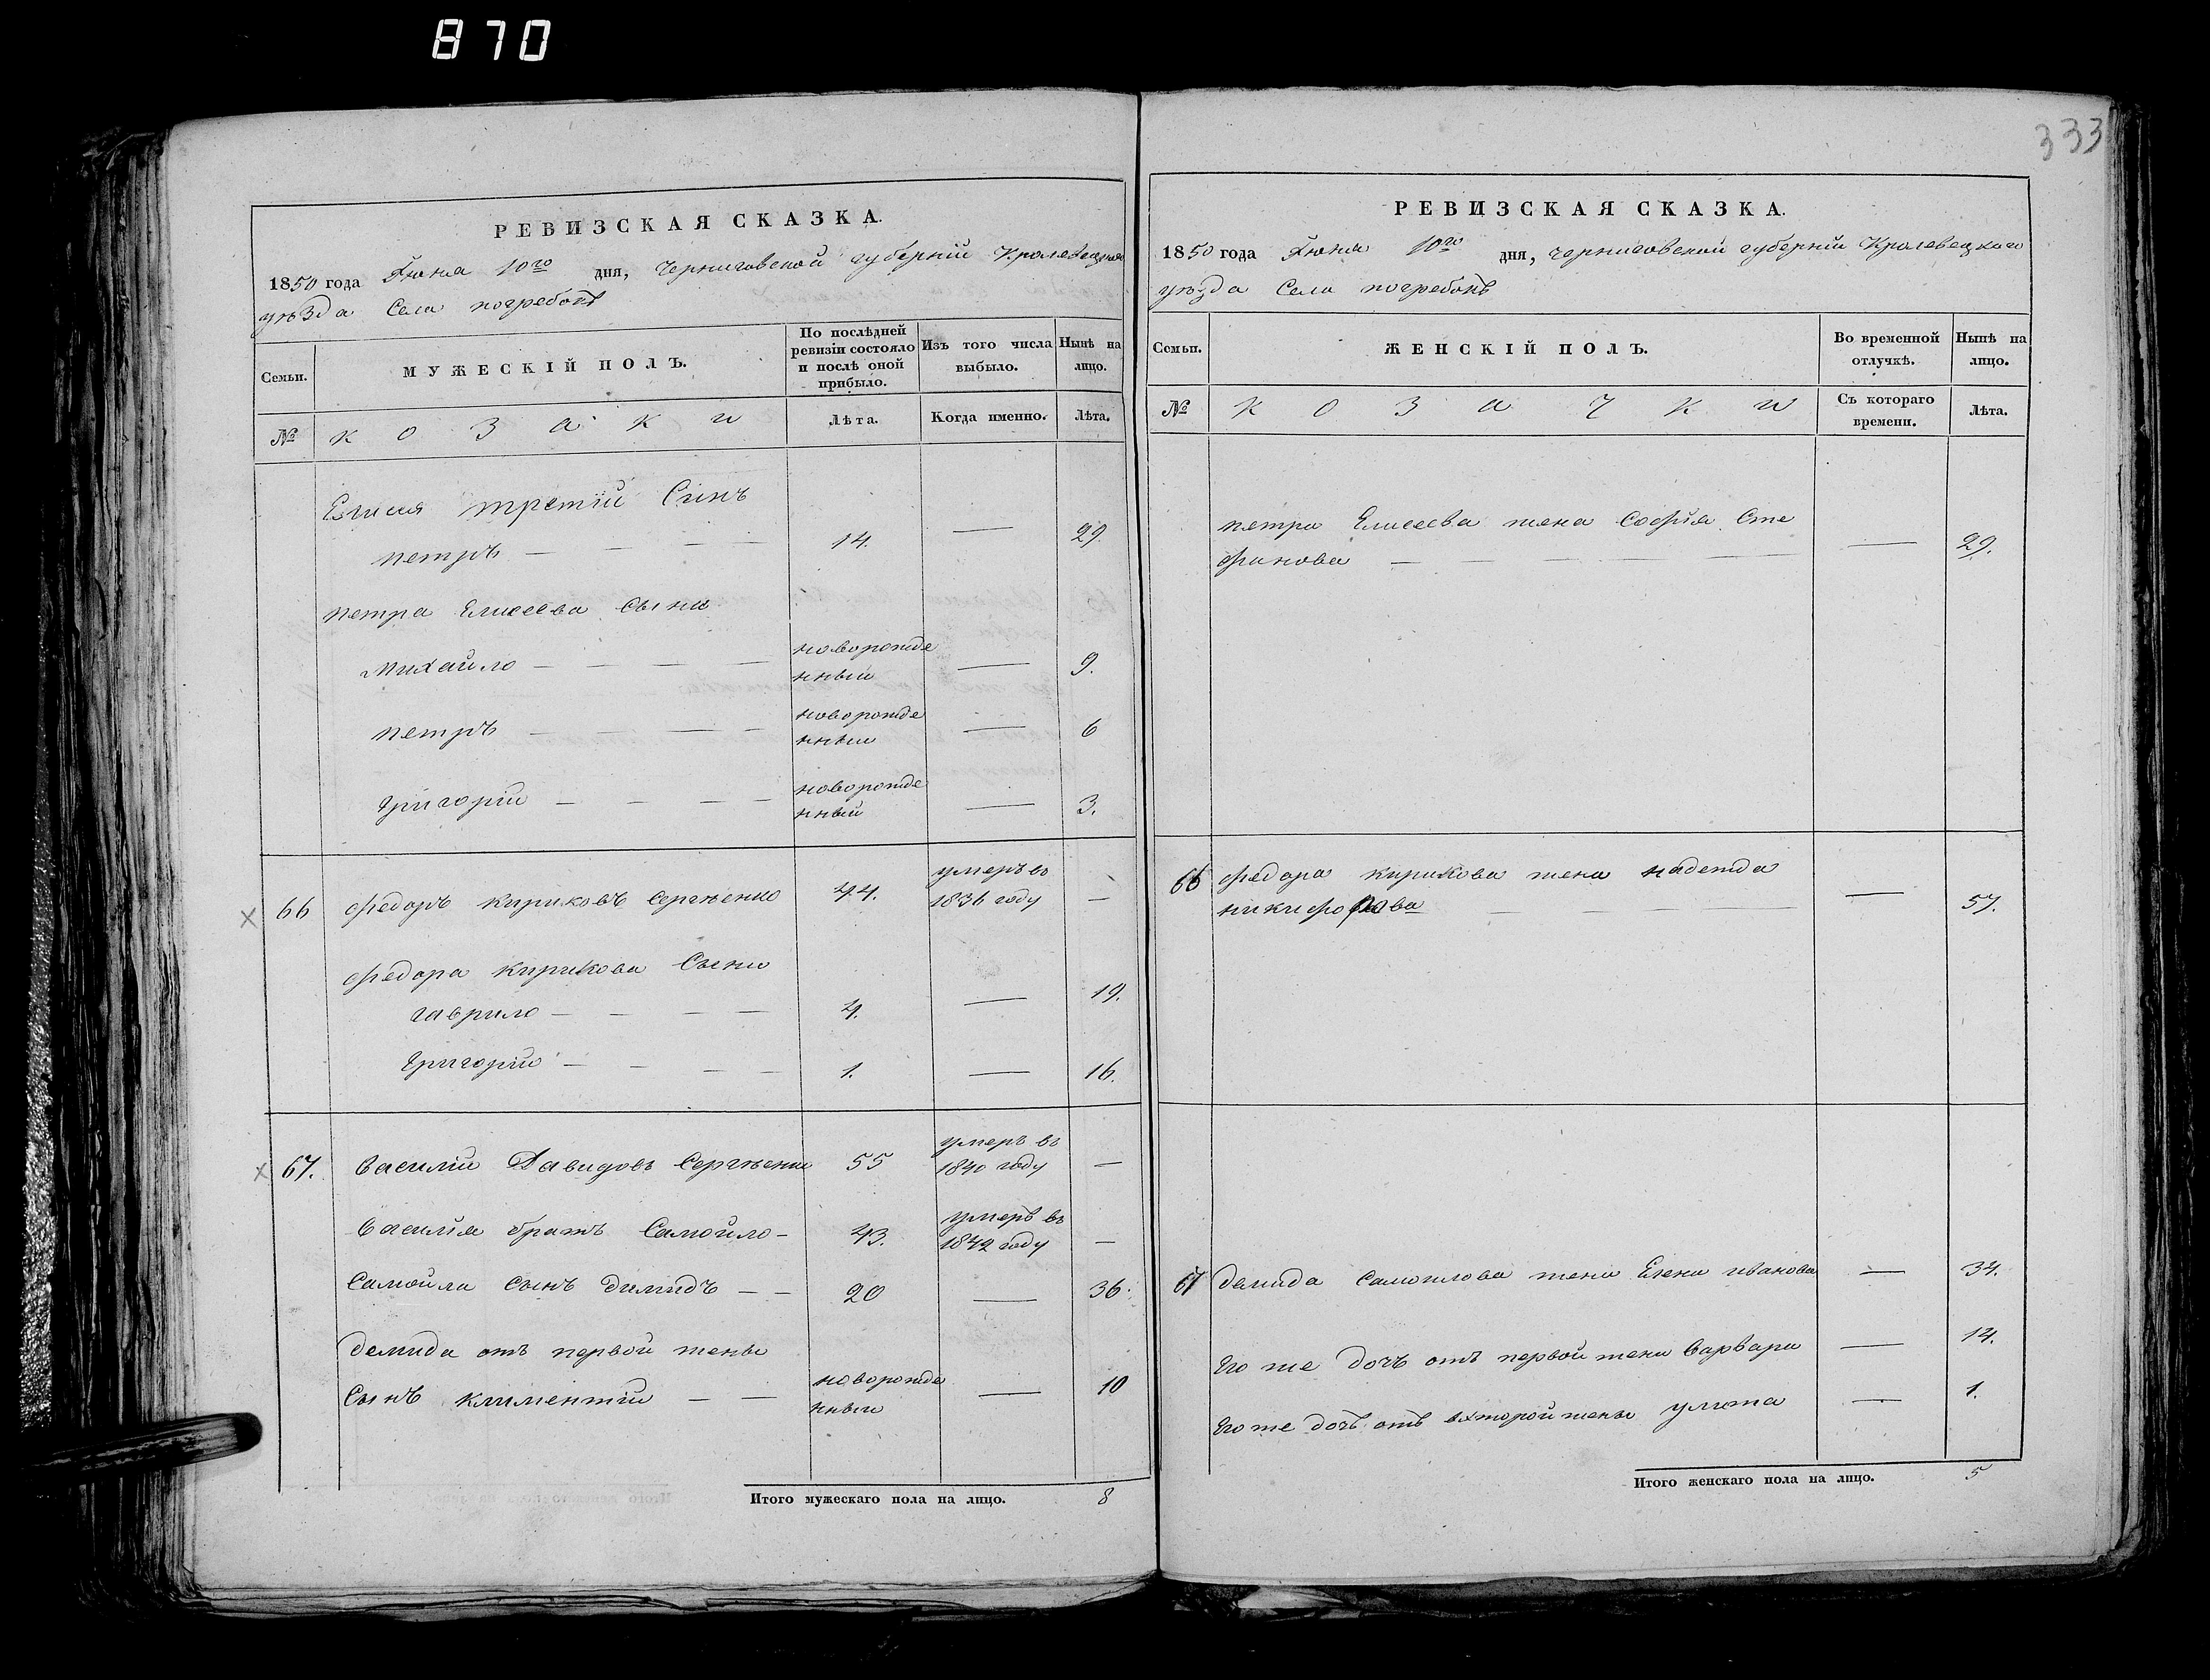 870
333
РЕВИЗСКАЯ СКАЗКА.
1850 года Іюня 10го дня, Черниговской губерніи Кролевецкаго
уѣзда Села погребокъ
Семьи. МУЖЕСКІЙ ПОЛЪ. По послѣдней ревизіи состояло и послѣ оной прибыло. Изъ того числа выбыло. Нынѣ на лицо.
№ козаки Лѣта. Когда именно. Лѣта.
Елисея третій Сынъ
петръ — — — — 14. — 29.
петра Елисеева Сыны
михайло — — — — новорожде
нный — 9.
петръ — — — — новорожде
нный — 6
григорій — — — — новорожде
нный — 3.
х 66 Федоръ Кириковъ Сергѣенко 44. умеръ въ
1836 году —
Федора Кирикова Сыны
гаврило — — — — 4. — 19.
Григорій — — — — 1. — 16.
х 67. Василій Давидовъ Сергѣенко 55 умеръ въ
1840 году —
Василія братъ Самойло — 43. умеръ въ
1842 году —
Самойла Сынъ Димидъ — — 20 — 36.
Демида отъ первой жены
Сынъ климентій — — новорожде
нный — 10
Итого мужескаго пола на лицо. 8
РЕВИЗСКАЯ СКАЗКА.
1850 года Іюня 10го дня, Черниговской губерніи Кролевецкаго
уѣзда Села погребокъ
Семьи. ЖЕНСКІЙ ПОЛЪ. Во временной отлучкѣ. Нынѣ на лицо.
№ козачки Съ котораго времени. Лѣта.
петра Елисеева жена Софія Сте
фанова — — — — — 29.
66 Федора Кирикова жена надежда
никифорова — — — — 57.
67 Демида Самоилова жена Елена иванова — 34.
Его же дочъ отъ первой жены Варвара — 14.
Его же дочъ отъ второй жены улита — 1.
Итого женскаго пола на лицо. 5